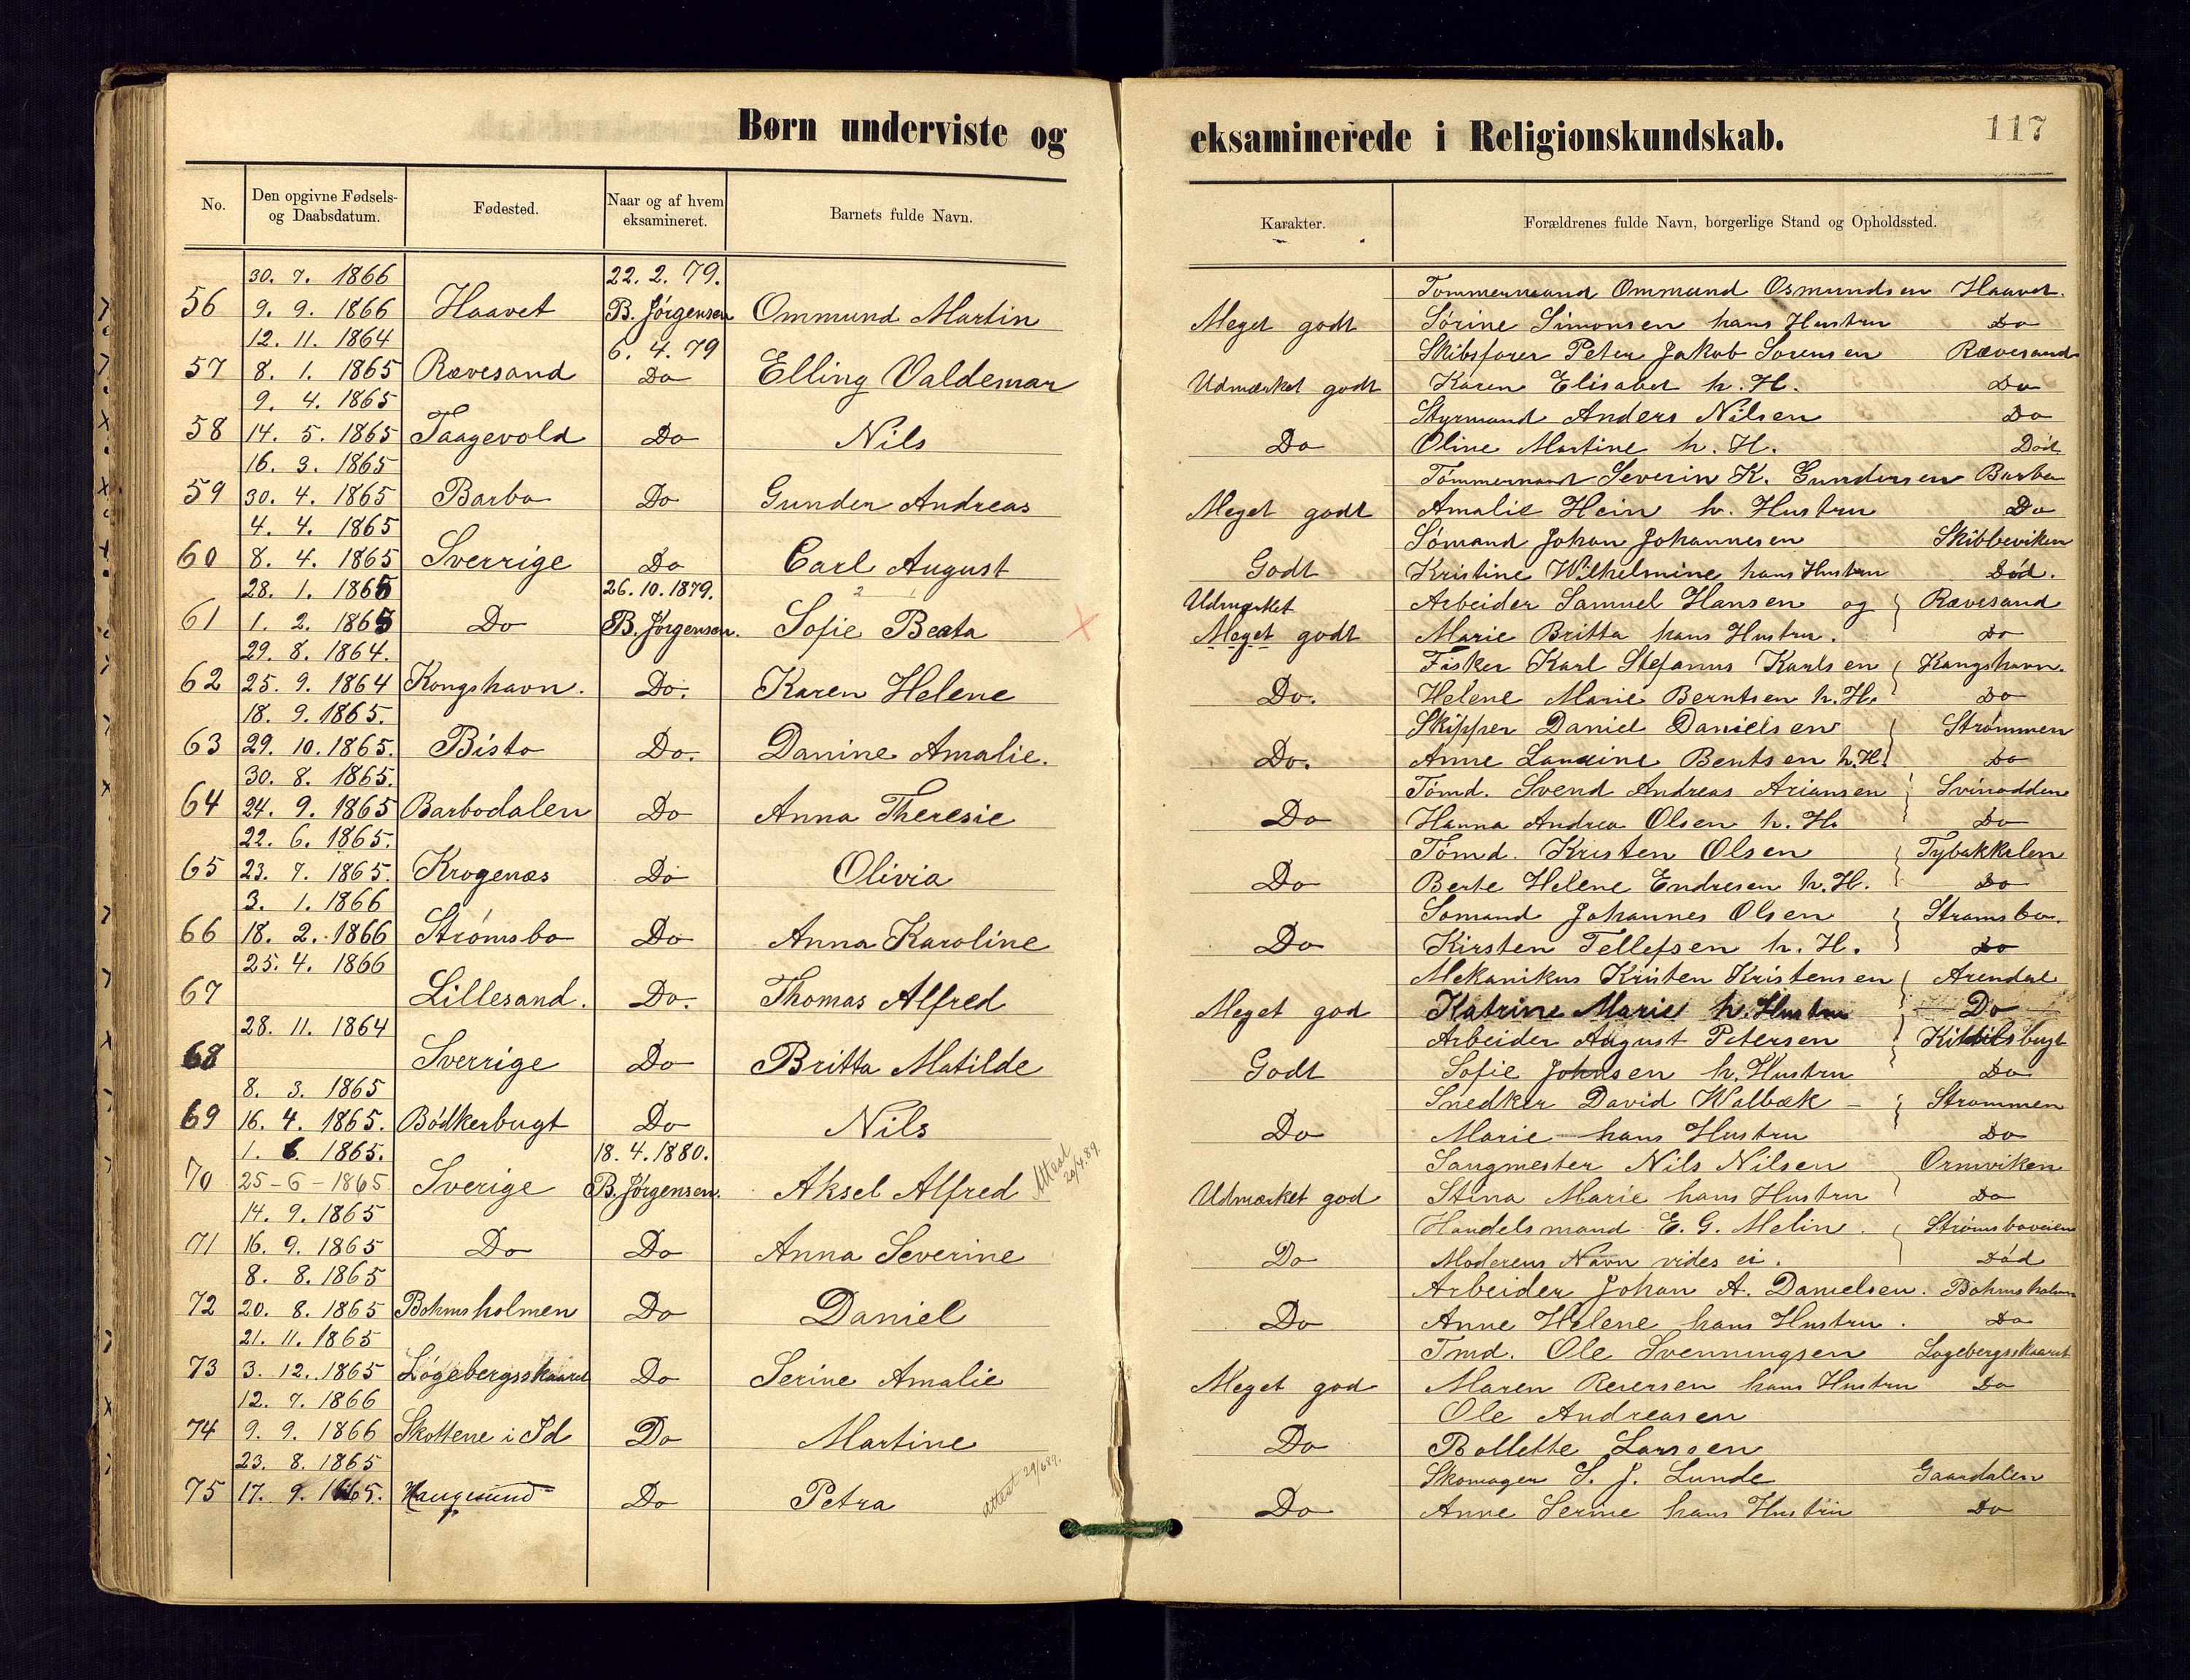 Børn underviste og
eksaminerede i Religionskundskab.
117
No.
Den opgivne Fødsels- og Daabsdatum.
Fødested.
Naar og af hvem eksamineret.
Barnets fulde Navn.
Karakter.
Forældrenes fulde Navn, borgerlige Stand og Opholdssted.
30. 7. 1866 22. 2. 79. Tømmermand Ommund Osmundsen Haavet.
56 9. 9. 1866 Haavet B. Jørgensen Ommund Martin Meget godt Sørine Simonsen hans Hustru Do
12. 11. 1864 6. 4. 79 Skibsfører Peter Jakob Sørensen Rævesand
57 8. 1. 1865 Rævesand Do Elling Valdemar Udmærket godt Karen Elisabet h. H. Do
9. 4. 1865 Styrmand Anders Nilsen Do
58 14. 5. 1865 Taagevold Do Nils Do Oline Martine h. H. Død
16. 3. 1865 Tømmermand Severin K. Gundersen Barbo
59 30. 4. 1865 Barbo Do Gunder Andreas Meget godt Amalie Hein h. Hustru Do
4. 4. 1865 Sømand Johan Johannesen Skibbeviken
60 8. 4. 1865 Sverrige Do Carl August Godt Kristine Wilhelmine hans Hustru Død.
28. 1. 1865 26. 10. 1879. 2 1 Udmærket Arbeider Samuel Hansen og Rævesand
61 1. 2. 1865 Do B. Jørgensen. Sofie Beata X Meget godt Marie Britta hans Hustru. Do
29. 8. 1864. Fisker Karl Stefanus Karlsen Kongshavn.
62 25. 9. 1864 Kongshavn. Do. Karen Helene Do. Helene Marie Berntsen h. H. Do
18. 9. 1865. Skipper Daniel Danielsen Strømmen
63 29. 10. 1865. Bisto Do. Danine Amalie. Do. Anne Laurine Bentsen h. H. Do
30. 8. 1865. Tømd. Svend Andreas Ariansen Svinodden
64 24. 9. 1865 Barbodalen Do Anna Theresie Do Hanna Andrea Olsen h. H. Do
22. 6. 1865. Tømd. Kristen Olsen Tybakkelen
65 23. 7. 1865. Krogenæs Do Olivia Do Berte Helene Endresen h. H. Do
3. 1. 1866 Sømand Johannes Olsen Strømsbo.
66 18. 2. 1866 Strømsbo Do Anna Karoline Do Kirsten Tellefsen h. H. Do
25. 4. 1866 Mekanikus Kristen Kristensen Arendal
67 Lillesand. Do. Thomas Alfred Meget god Katrine Marie h. Hustru Do
28. 11. 1864 Arbeider August Petersen Kittilsbugt
68 Sverrige Do Britta Matilde Godt Sofie Johnsen h. Hustru Do
8. 3. 1865 Snedker David Walbæk Strømmen
69 16. 4. 1865. Bødkerbugt Do Nils Do Marie hans Hustru Do
1. 6. 1865. 18. 4. 1880. Attest 20/4.89. Saugmester Nils Nilsen Ormviken
70 25-6-1865 Sverige B. Jørgensen. Aksel Alfred Udmærket god Stina Marie hans Hustru Do
14. 9. 1865 Handelsmand E. G. Melin. Strømsboveien
71 16. 9. 1865 Do Do Anna Severine Do Moderens Navn vides ei. Død
8. 8. 1865 Arbeider Johan A. Danielsen. Bohmsholmen
72 20. 8. 1865 Bohmsholmen Do Daniel Do Anne Helene hans Hustru. Do
21. 11. 1865 Tmd. Ole Svenningsen Løgebergsskaaret
73 3. 12. 1865 Løgebergsskaaret Do Serine Amalie Meget god Maren Reiersen hans Hustru Do
12. 7. 1866 Ole Andreasen
74 9. 9. 1866 Skottene i Id Do Martine Do Bollette Larssen
23. 8. 1865 attest 29/6 89. Skomager S. J. Lunde Gaardalen
75 17. 9. 1865. Haugesund Do Petra Do Anne Serine hans Hustru Do